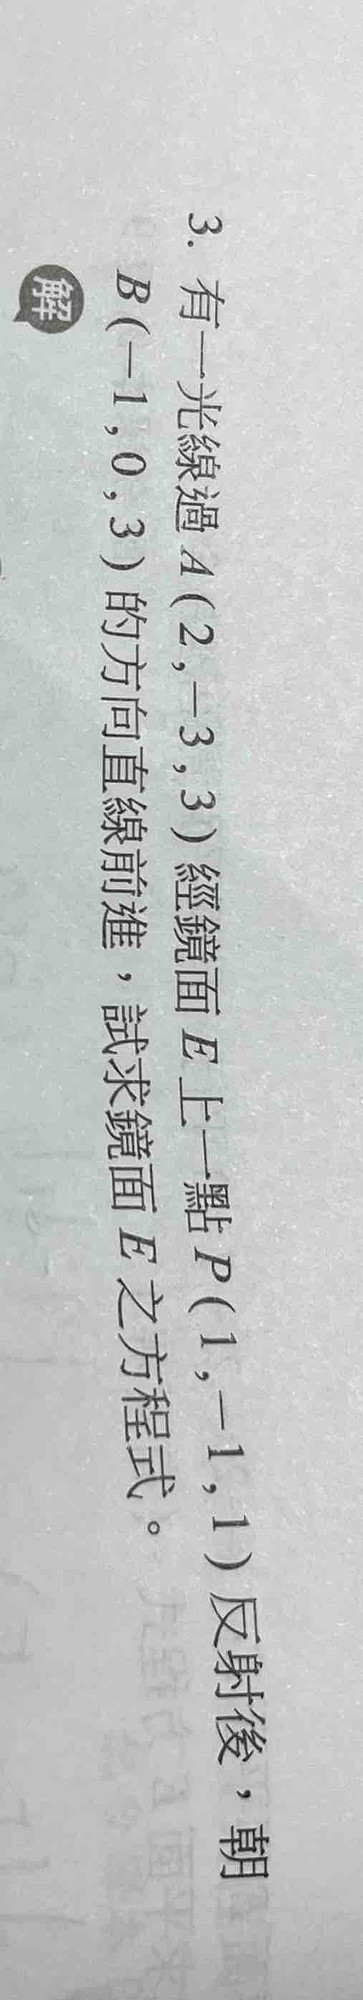 3. 有一光線過 A(2,−3,3) 經鏡面 E 上一點 P(1,−1,1) 反射後，朝
B(−1,0,3) 的方向直線前進，試求鏡面 E 之方程式。
解